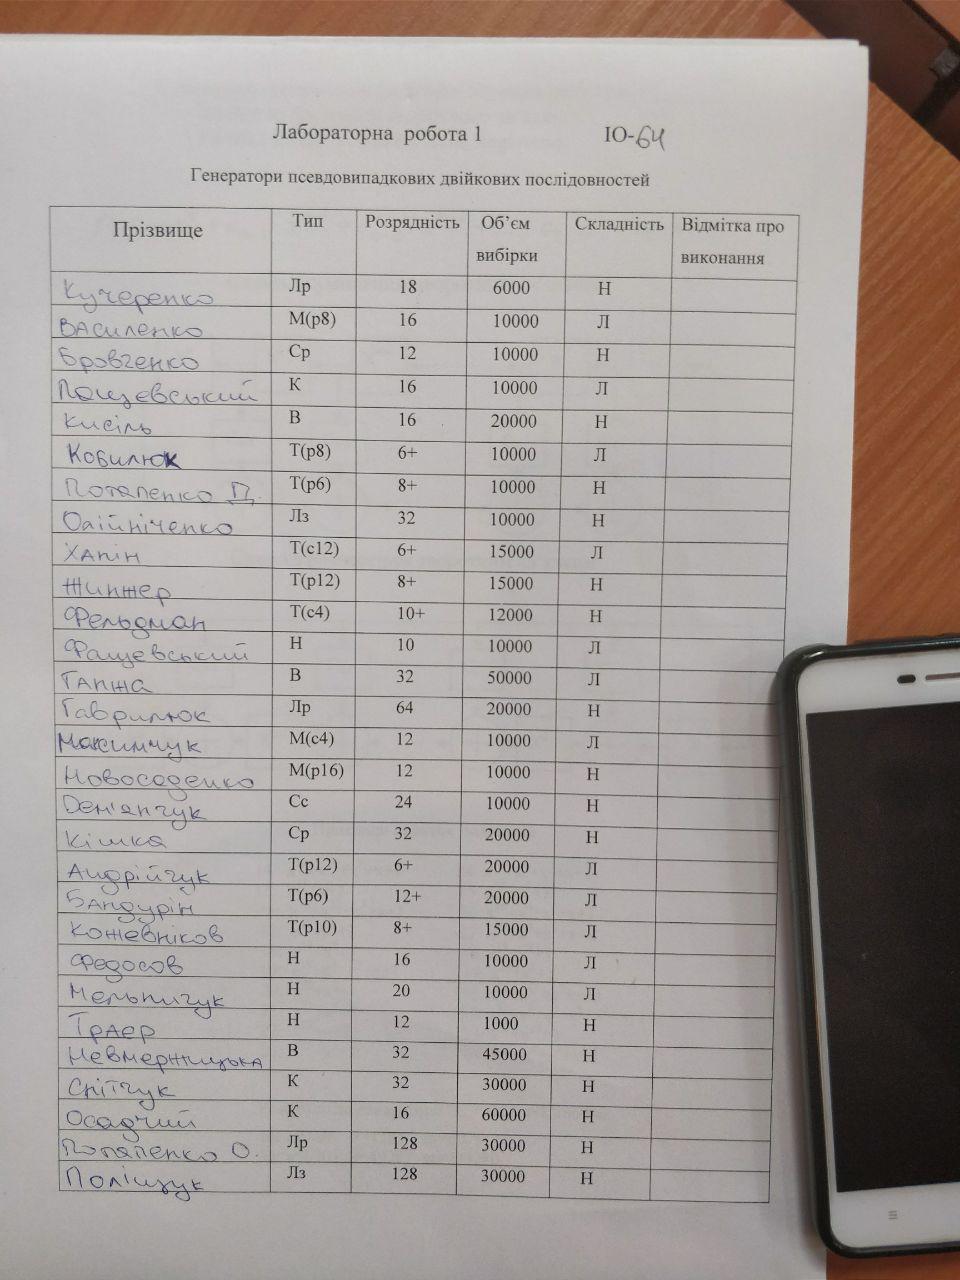 Лабораторна робота 1 ІО-64
Генератори псевдовипадкових двійкових послідовностей
Прізвище Тип Розрядність Об’єм вибірки Складність Відмітка про виконання
Кучеренко Лр 18 6000 Н
Василенко М(р8) 16 10000 Л
Бровченко Ср 12 10000 Н
Пащевський К 16 10000 Л
Кисіль В 16 20000 Н
Кобилюк Т(р8) 6+ 10000 Л
Потапенко Д. Т(р6) 8+ 10000 Н
Олійніченко Лз 32 10000 Н
Хапін Т(с12) 6+ 15000 Л
Жинжер Т(р12) 8+ 15000 Н
Фельдман Т(с4) 10+ 12000 Н
Фащевський Н 10 10000 Л
Ганжа В 32 50000 Л
Гаврилюк Лр 64 20000 Н
Максимчук М(с4) 12 10000 Л
Новосаденко М(р16) 12 10000 Н
Дем'янчук Сс 24 10000 Н
Кішка Ср 32 20000 Н
Андрійчук Т(р12) 6+ 20000 Л
Бандурін Т(р6) 12+ 20000 Л
Кожевніков Т(р10) 8+ 15000 Л
Федосов Н 16 10000 Л
Мельничук Н 20 10000 Л
Траер Н 12 1000 Н
Невмержицька В 32 45000 Н
Снітчук К 32 30000 Н
Осадчий К 16 60000 Н
Потапенко О. Лр 128 30000 Н
Поліщук Лз 128 30000 Н